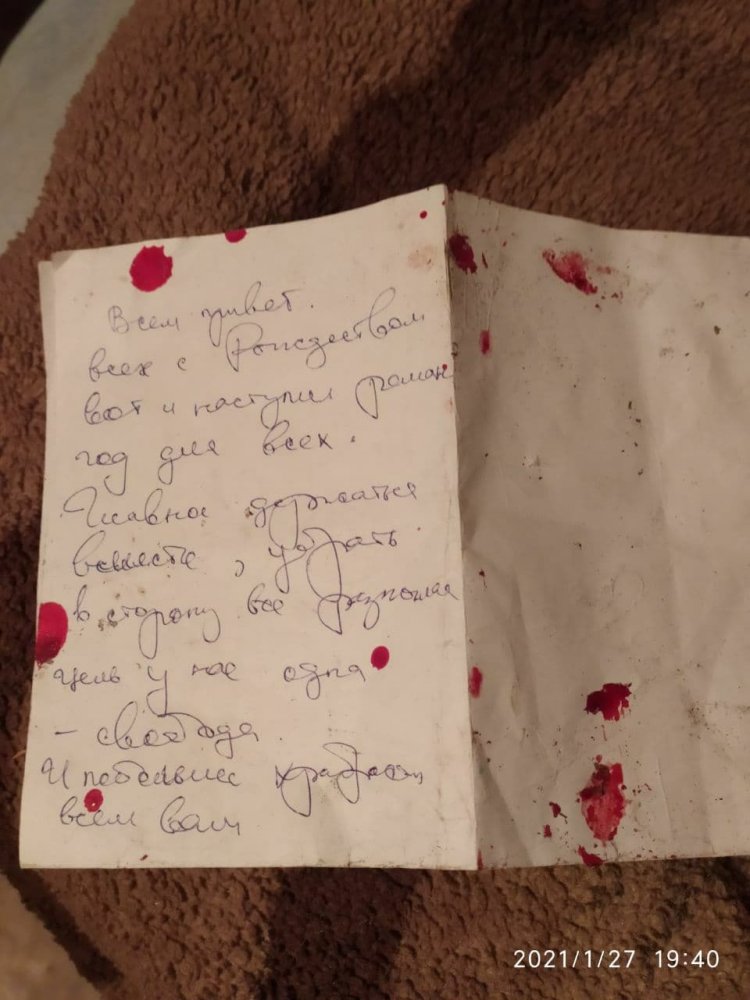 Всем привет.
всех с Рождеством
вот и наступил роман
год для всех.
Главное держаться
вместе, убрать
в сторону все
цель у нас одна
- свобода.
И побольше храбрости
всем вам
2021/1/27 19:40